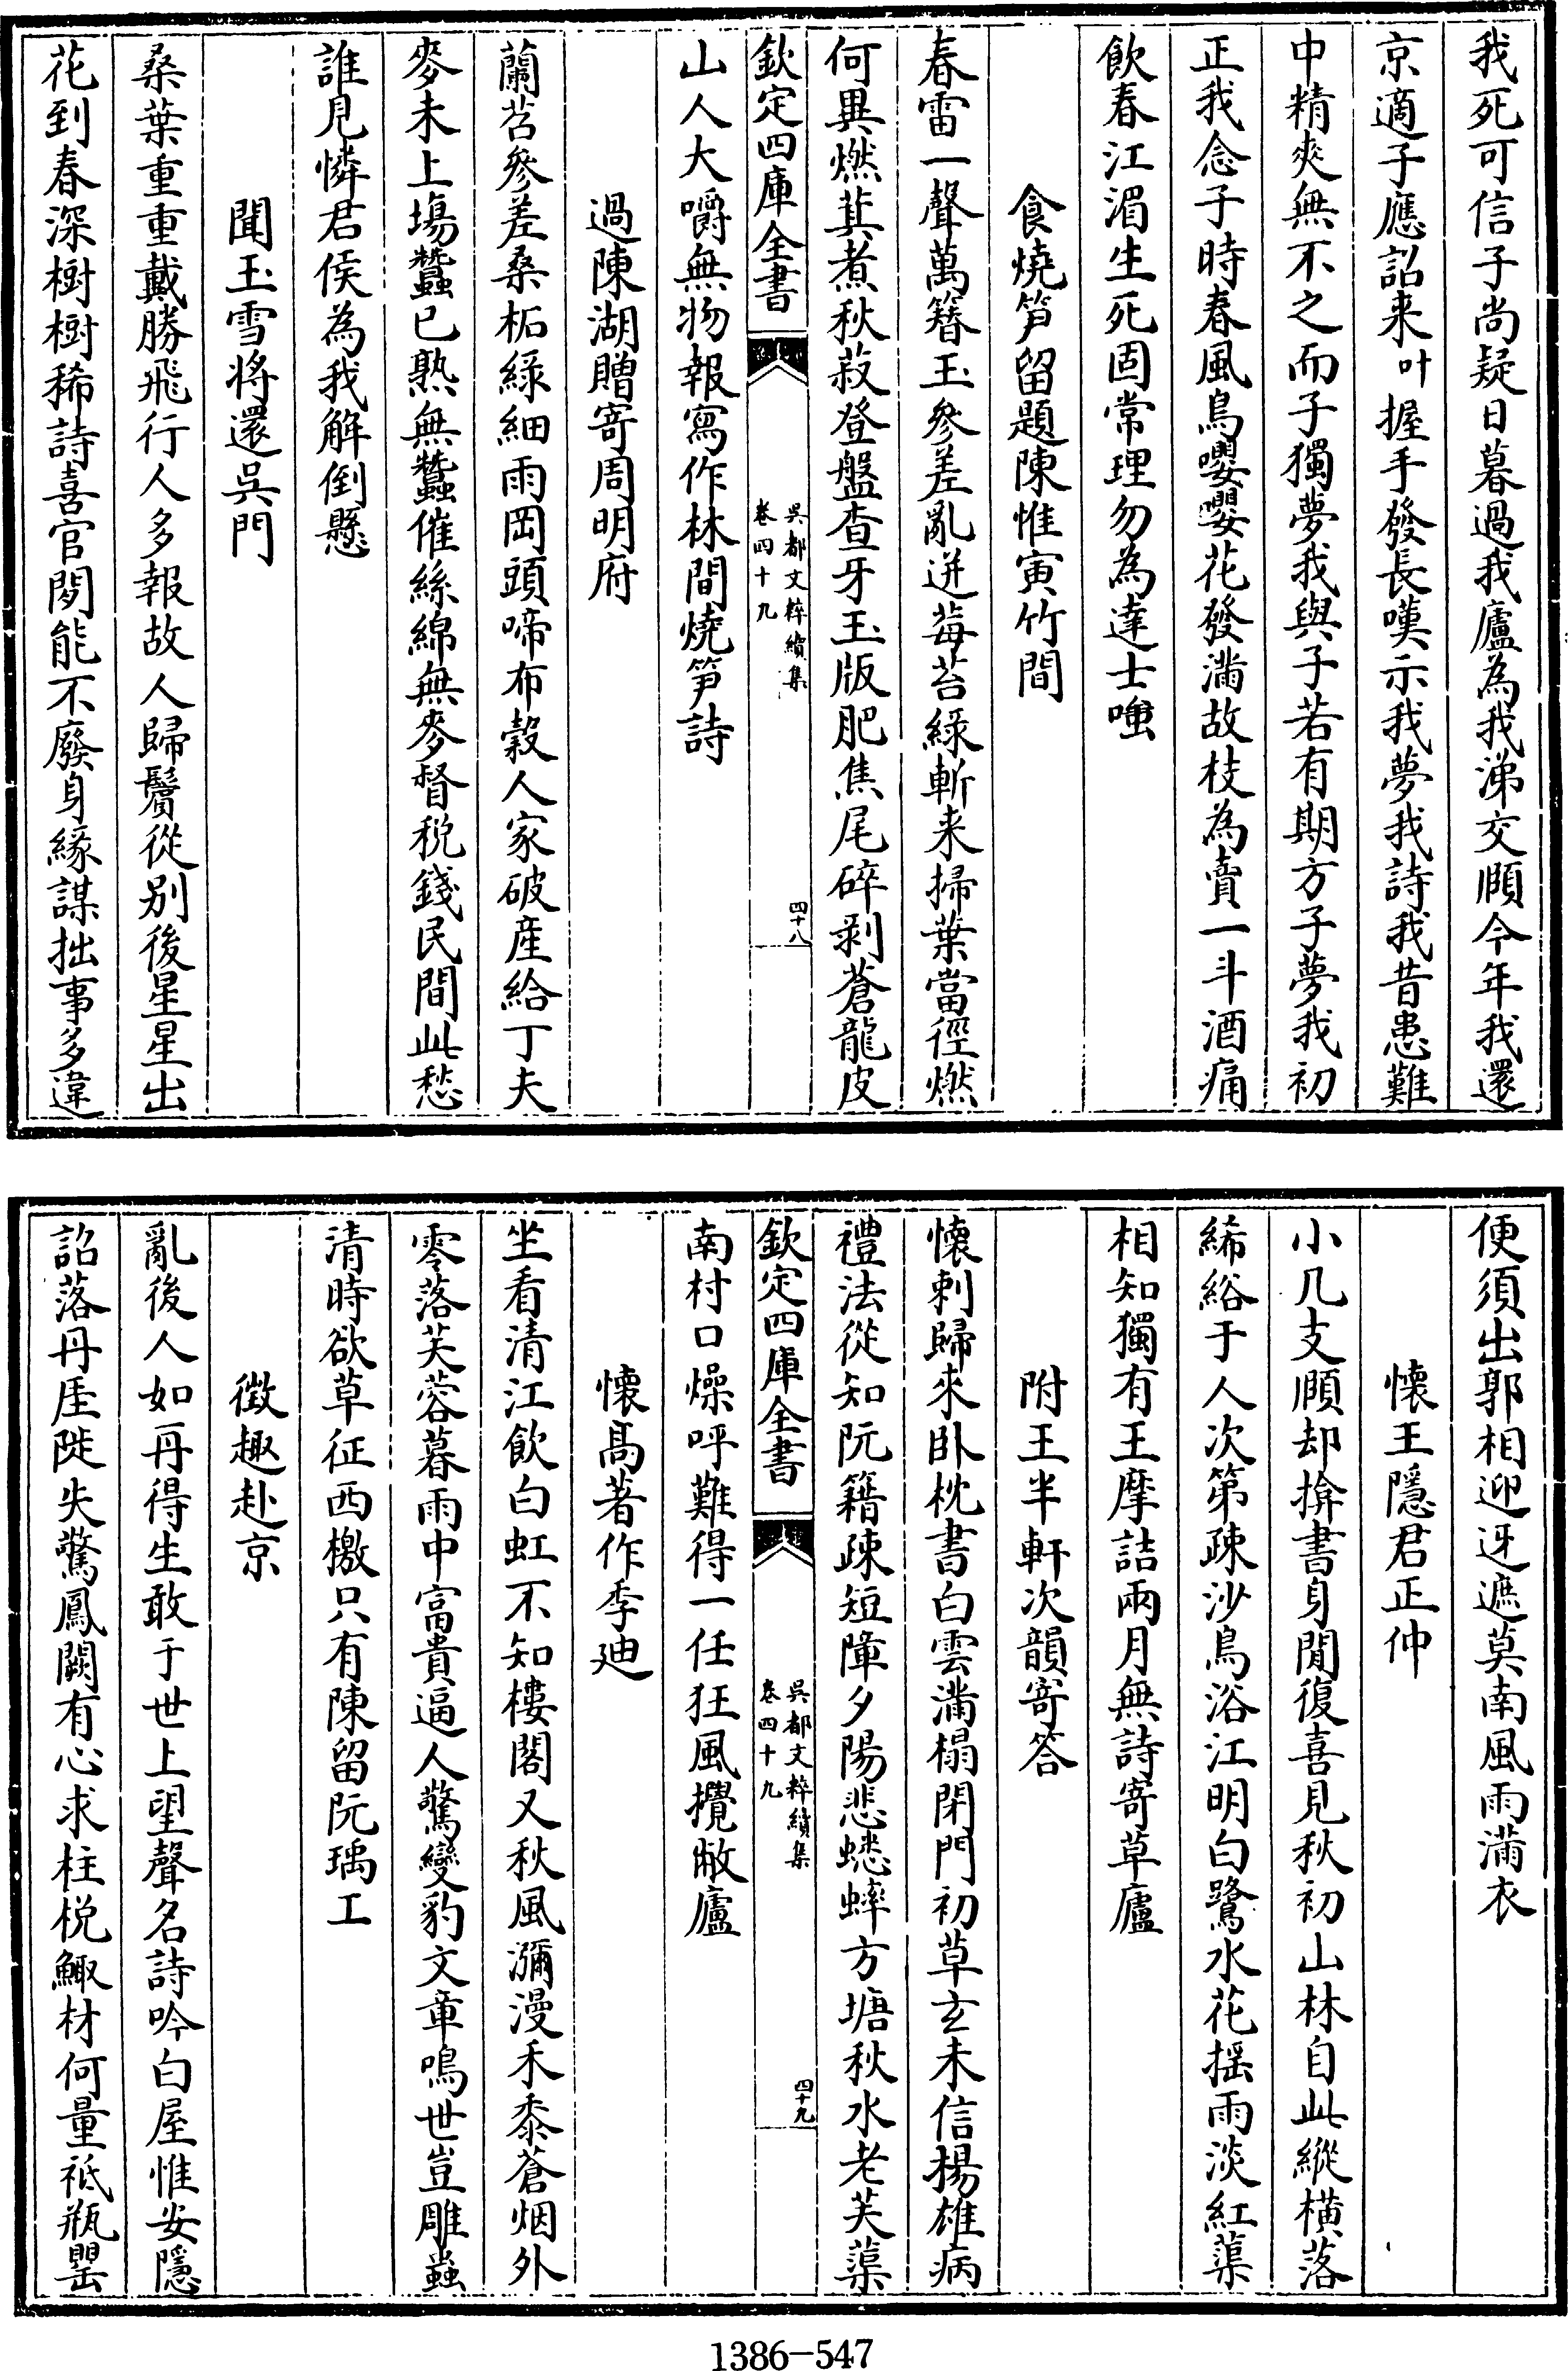 我死可信子尚疑日暮過我廬為我涕交頤今年我還
京適子應詔来叶握手發長嘆示我夢我詩我昔患難
中精爽無不之而子獨夢我與子若有期方子夢我初
正我念子時春風鳥嚶嚶花發滿故枝為賣一斗酒痛
飲春江湄生死固常理勿為達士嗤
食燒笋留題陳惟寅竹間
春雷一聲萬簮玉參差亂迸莓苔綠斬来掃葉當徑燃
何異燃萁煮秋菽登盤查牙玉版肥焦尾碎剥蒼龍皮
欽定四庫全書
吳都文粹續集
卷四十九
四十八
山人大嚼無物報寫作林間燒笋詩
過陳湖贈寄周明府
蘭苕參差桑柘綠細雨岡頭啼布穀人家破産給丁夫
麥未上場蠶已熟無蠶催絲綿無麥督税錢民間此愁
誰見憐君侯為我解倒懸
聞玉雪将還吳門
桑葉重重戴勝飛行人多報故人歸鬢從别後星星出
花到春深樹樹稀詩喜官閑能不廢身緣謀拙事多違
便須出郭相迎迓遮莫南風雨滿衣
懷王隱君正仲
小几支頤却揜書身閒復喜見秋初山林自此縱横落
絺綌于人次第疎沙鳥浴江明白鷺水花摇雨淡紅蕖
相知獨有王摩詰兩月無詩寄草廬
附王半軒次韻寄答
懷刺歸來卧枕書白雲滿榻閉門初草玄未信楊雄病
禮法從知阮籍疎短障夕陽悲蟋蟀方塘秋水老芙蕖
欽定四庫全書
吳都文粹續集
卷四十九
四十九
南村口燥呼難得一任狂風攪敝廬
懷髙著作季迪
坐看清江飲白虹不知樓閣又秋風瀰漫禾黍蒼烟外
零落芙蓉暮雨中富貴逼人驚變豹文章鳴世豈雕蟲
清時欲草征西檄只有陳留阮瑀工
徴趣赴京
亂後人如再得生敢于世上望聲名詩吟白屋惟安隱
詔落丹厓陡失驚鳳闕有心求柱梲鯫材何量祗瓶罌
1386-547